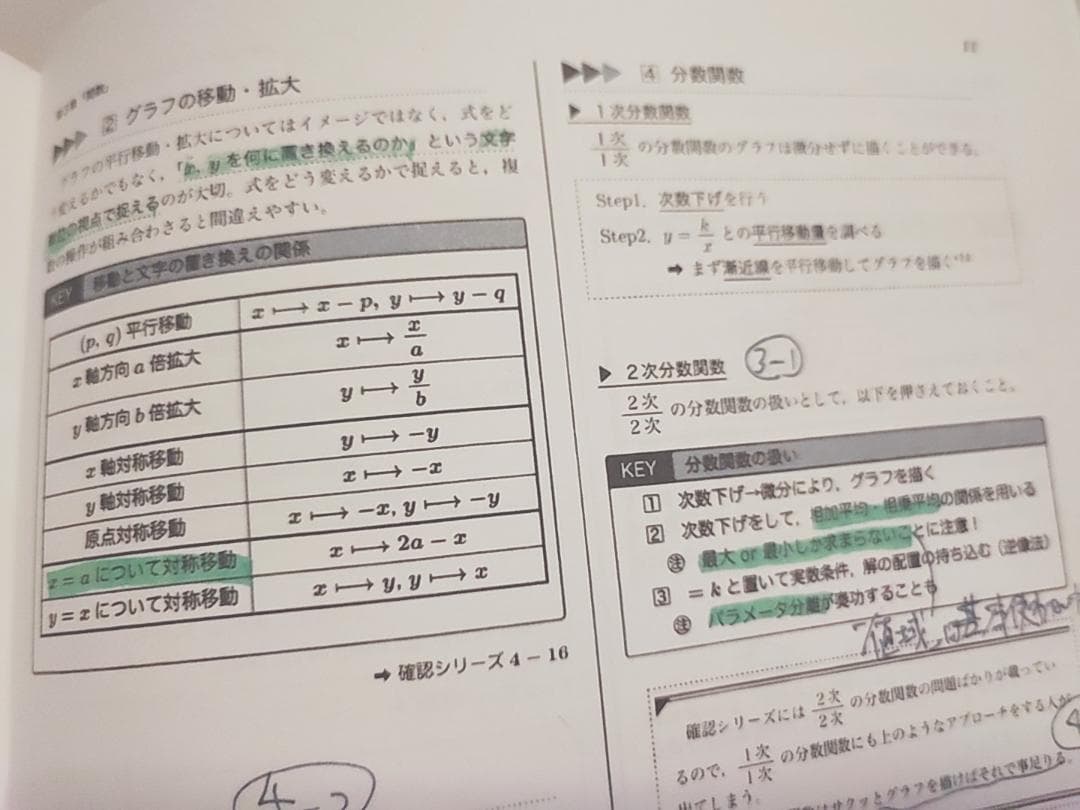 第2章「関数」
2 グラフの移動・拡大
グラフの平行移動・拡大についてはイメージではなく、式をど
う変えるかでもなく、「x, y を何に置き換えるのか」という文字
単位の視点で捉えるのが大切。式をどう変えるかで捉えると、複
数の操作が組み合わさると間違えやすい。
KEY 移動と文字の置き換えの関係
(p, q) 平行移動 x ⟼ x − p, y ⟼ y − q
x 軸方向 a 倍拡大 x ⟼ x/a
y 軸方向 b 倍拡大 y ⟼ y/b
x 軸対称移動 y ⟼ −y
y 軸対称移動 x ⟼ −x
原点対称移動 x ⟼ −x, y ⟼ −y
x = a について対称移動 x ⟼ 2a − x
y = x について対称移動 x ⟼ y, y ⟼ x
➡ 確認シリーズ 4 − 16
4
11
4 分数関数
▶ 1次分数関数
1次/1次 の分数関数のグラフは微分せずに描くことができる。
Step1. 次数下げを行う
Step2. y = k/x との平行移動量を調べる
➡ まず漸近線を平行移動してグラフを描く
▶ 2次分数関数 3-1
2次/2次 の分数関数の扱いとして、以下を押さえておくこと。
KEY 分数関数の扱い
1 次数下げ→微分により、グラフを描く
2 次数下げをして、相加平均・相乗平均の関係を用いる
注 最大 or 最小しか求まらないことに注意！
3 = k と置いて実数条件、解の配置の持ち込む（逆像法）
注 パラメータ分離が奏功することも
値域は基本使わ
確認シリーズには 2次/2次 の分数関数の問題ばかりが載ってい
るので、1次/1次 の分数関数にも上のようなアプローチをする人が
出てしまう。
はサクッとグラフを描けばそれで事足りる。